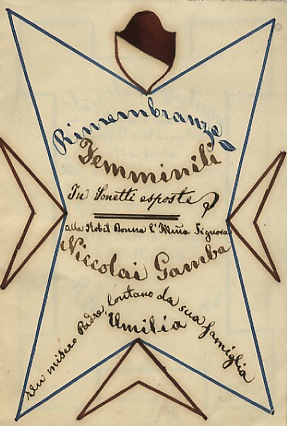 Rimembranze
Femminili
In Sonetti esposte
alla Nobil Donna l'Illma Signora
Niccolai Gamba
Umilia
Un misero Padre lontano da sua famiglia